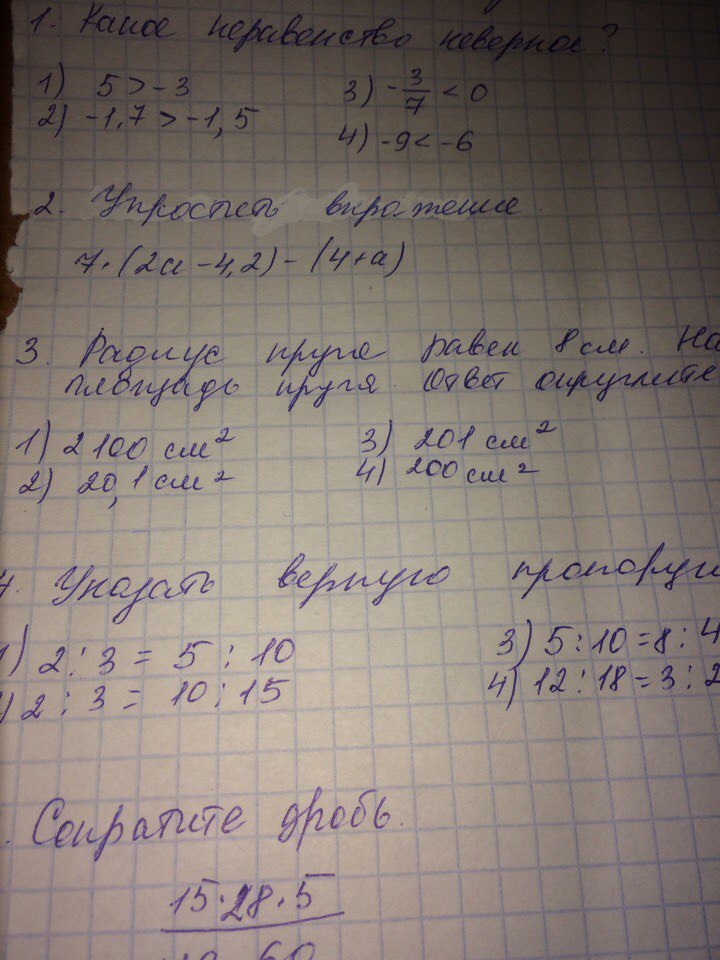 1. Какое неравенство неверное?
1) 5 > -3
2) -1,7 > -1,5
3) -3/7 < 0
4) -9 < -6
2. Упростить выражение
7·(2a - 4,2) - (4 + a)
3. Радиус круга равен 8 см. На
площадь круга. Ответ округлите
1) 2 100 см²
2) 20,1 см²
3) 201 см²
4) 200 см²
Указать верную пропорци
1) 2 : 3 = 5 : 10
2 : 3 = 10 : 15
3) 5 : 10 = 8 : 4
4) 12 : 18 = 3 : 2
Сократите дробь.
15·28·5